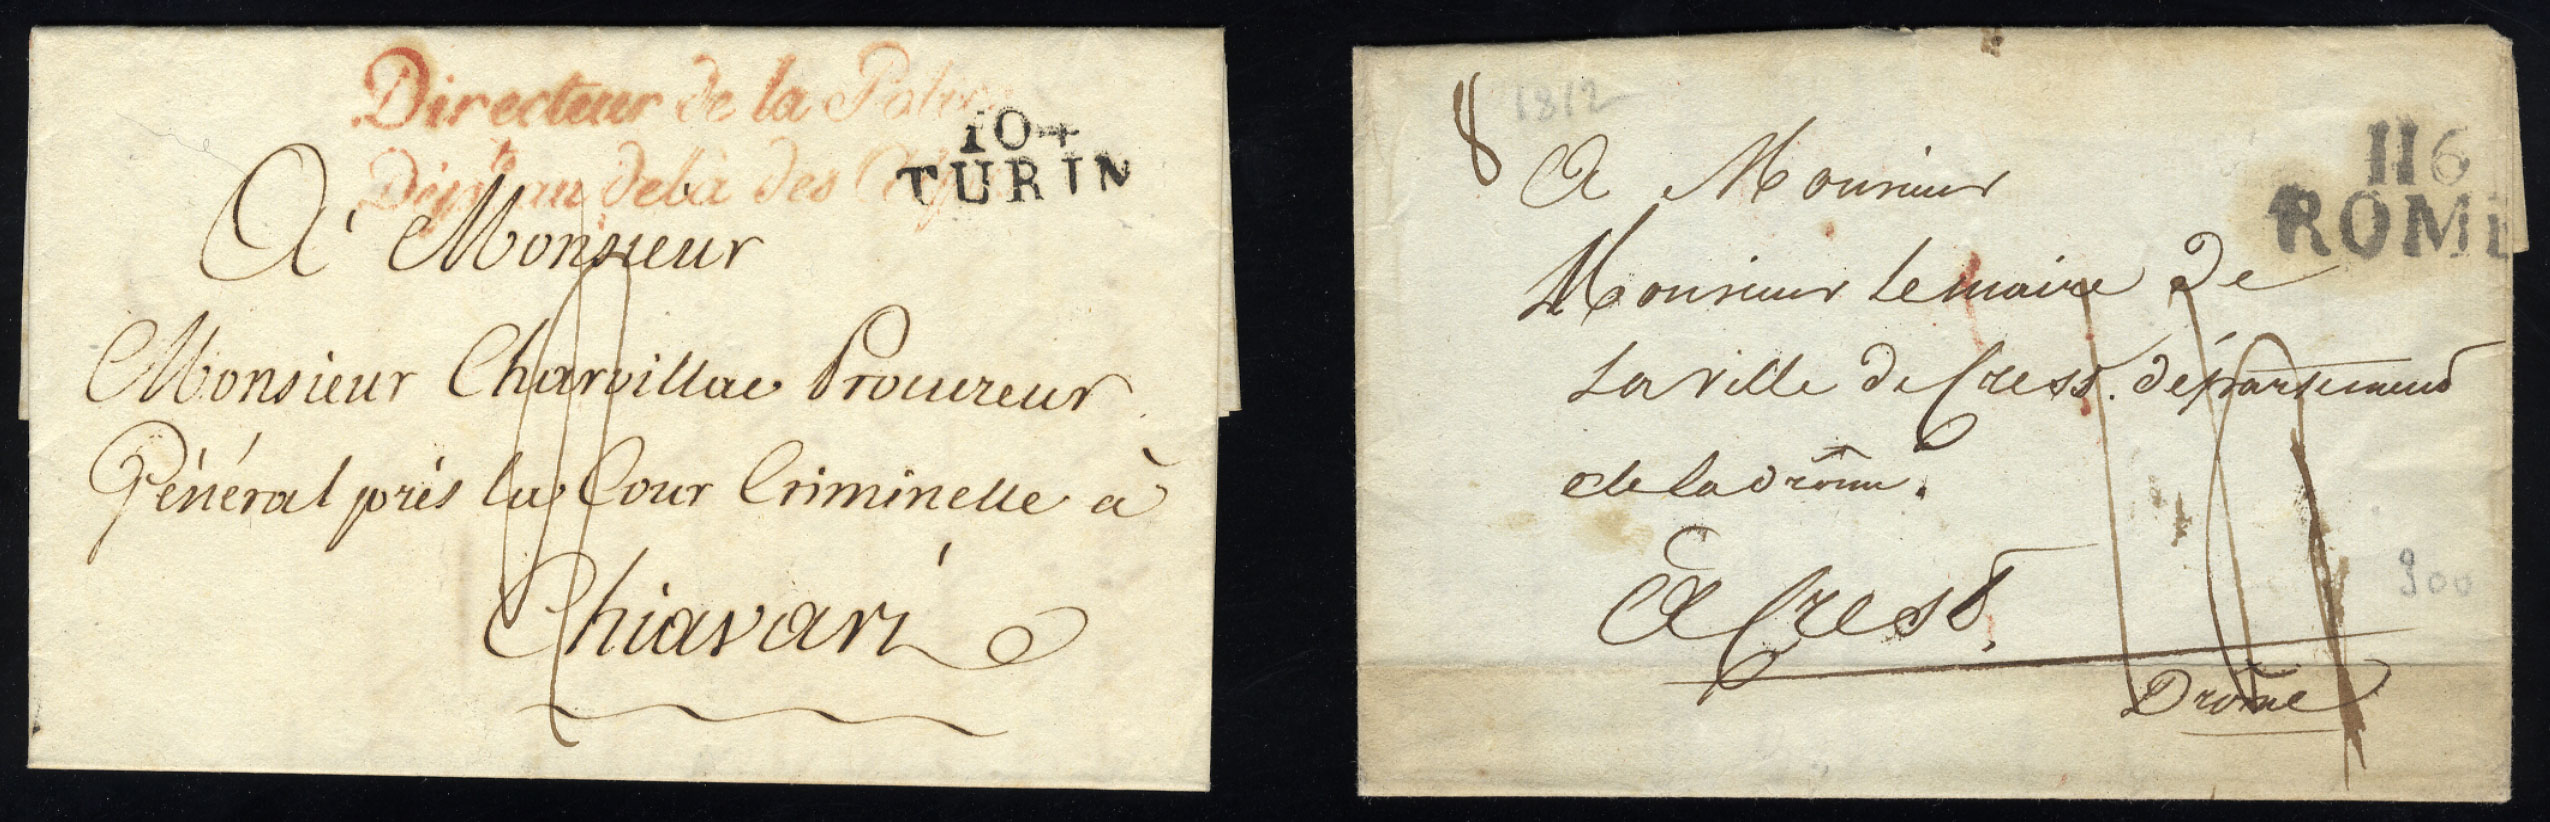 Directeur de la Police
Dép.ts au delà des Alpes
104
TURIN
A' Monsieur
Monsieur Charvillac Procureur
Général près la Cour Criminelle à
Chiavari
8
1812
116
ROME
A Monsieur
Monsieur le maire de
La ville de Crest. département
de la drôme.
A Crest.
Drôme
300